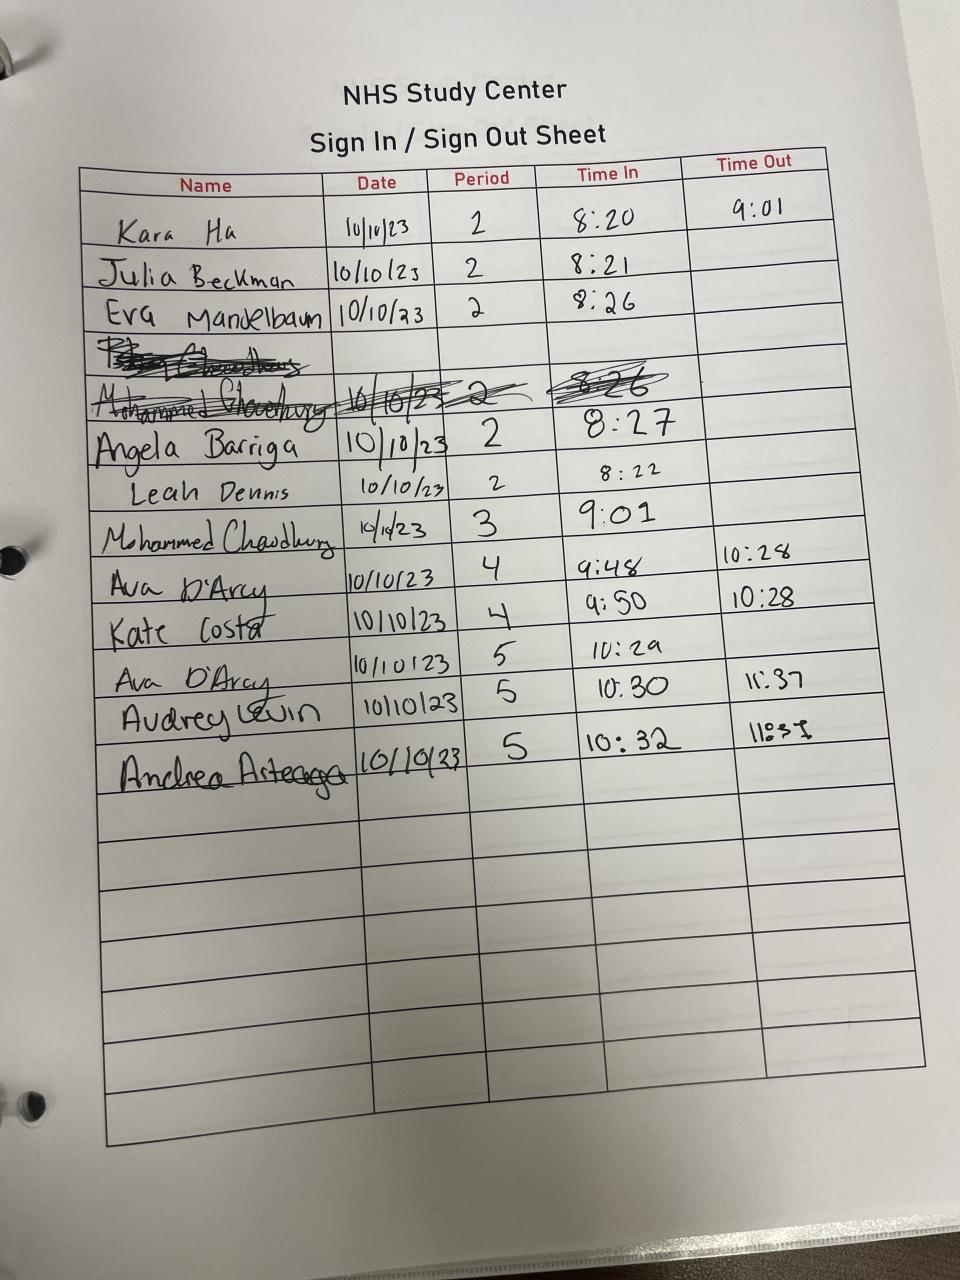 NHS Study Center
Sign In / Sign Out Sheet
Name Date Period Time In Time Out
Kara Ha 10/10/23 2 8:20 9:01
Julia Beckman 10/10/23 2 8:21
Eva Mandelbaum 10/10/23 2 8:26
Chowdhury
Mohammed Chowdhury 10/10/23 2 8:26
Angela Barriga 10/10/23 2 8:27
Leah Dennis 10/10/23 2 8:22
Mohammed Chowdhury 10/10/23 3 9:01
Ava D'Arcy 10/10/23 4 9:48 10:28
Kate Costa 10/10/23 4 9:50 10:28
Ava D'Arcy 10/10/23 5 10:29
Audrey Levin 10/10/23 5 10:30 11:37
Andrea Arteaga 10/10/23 5 10:32